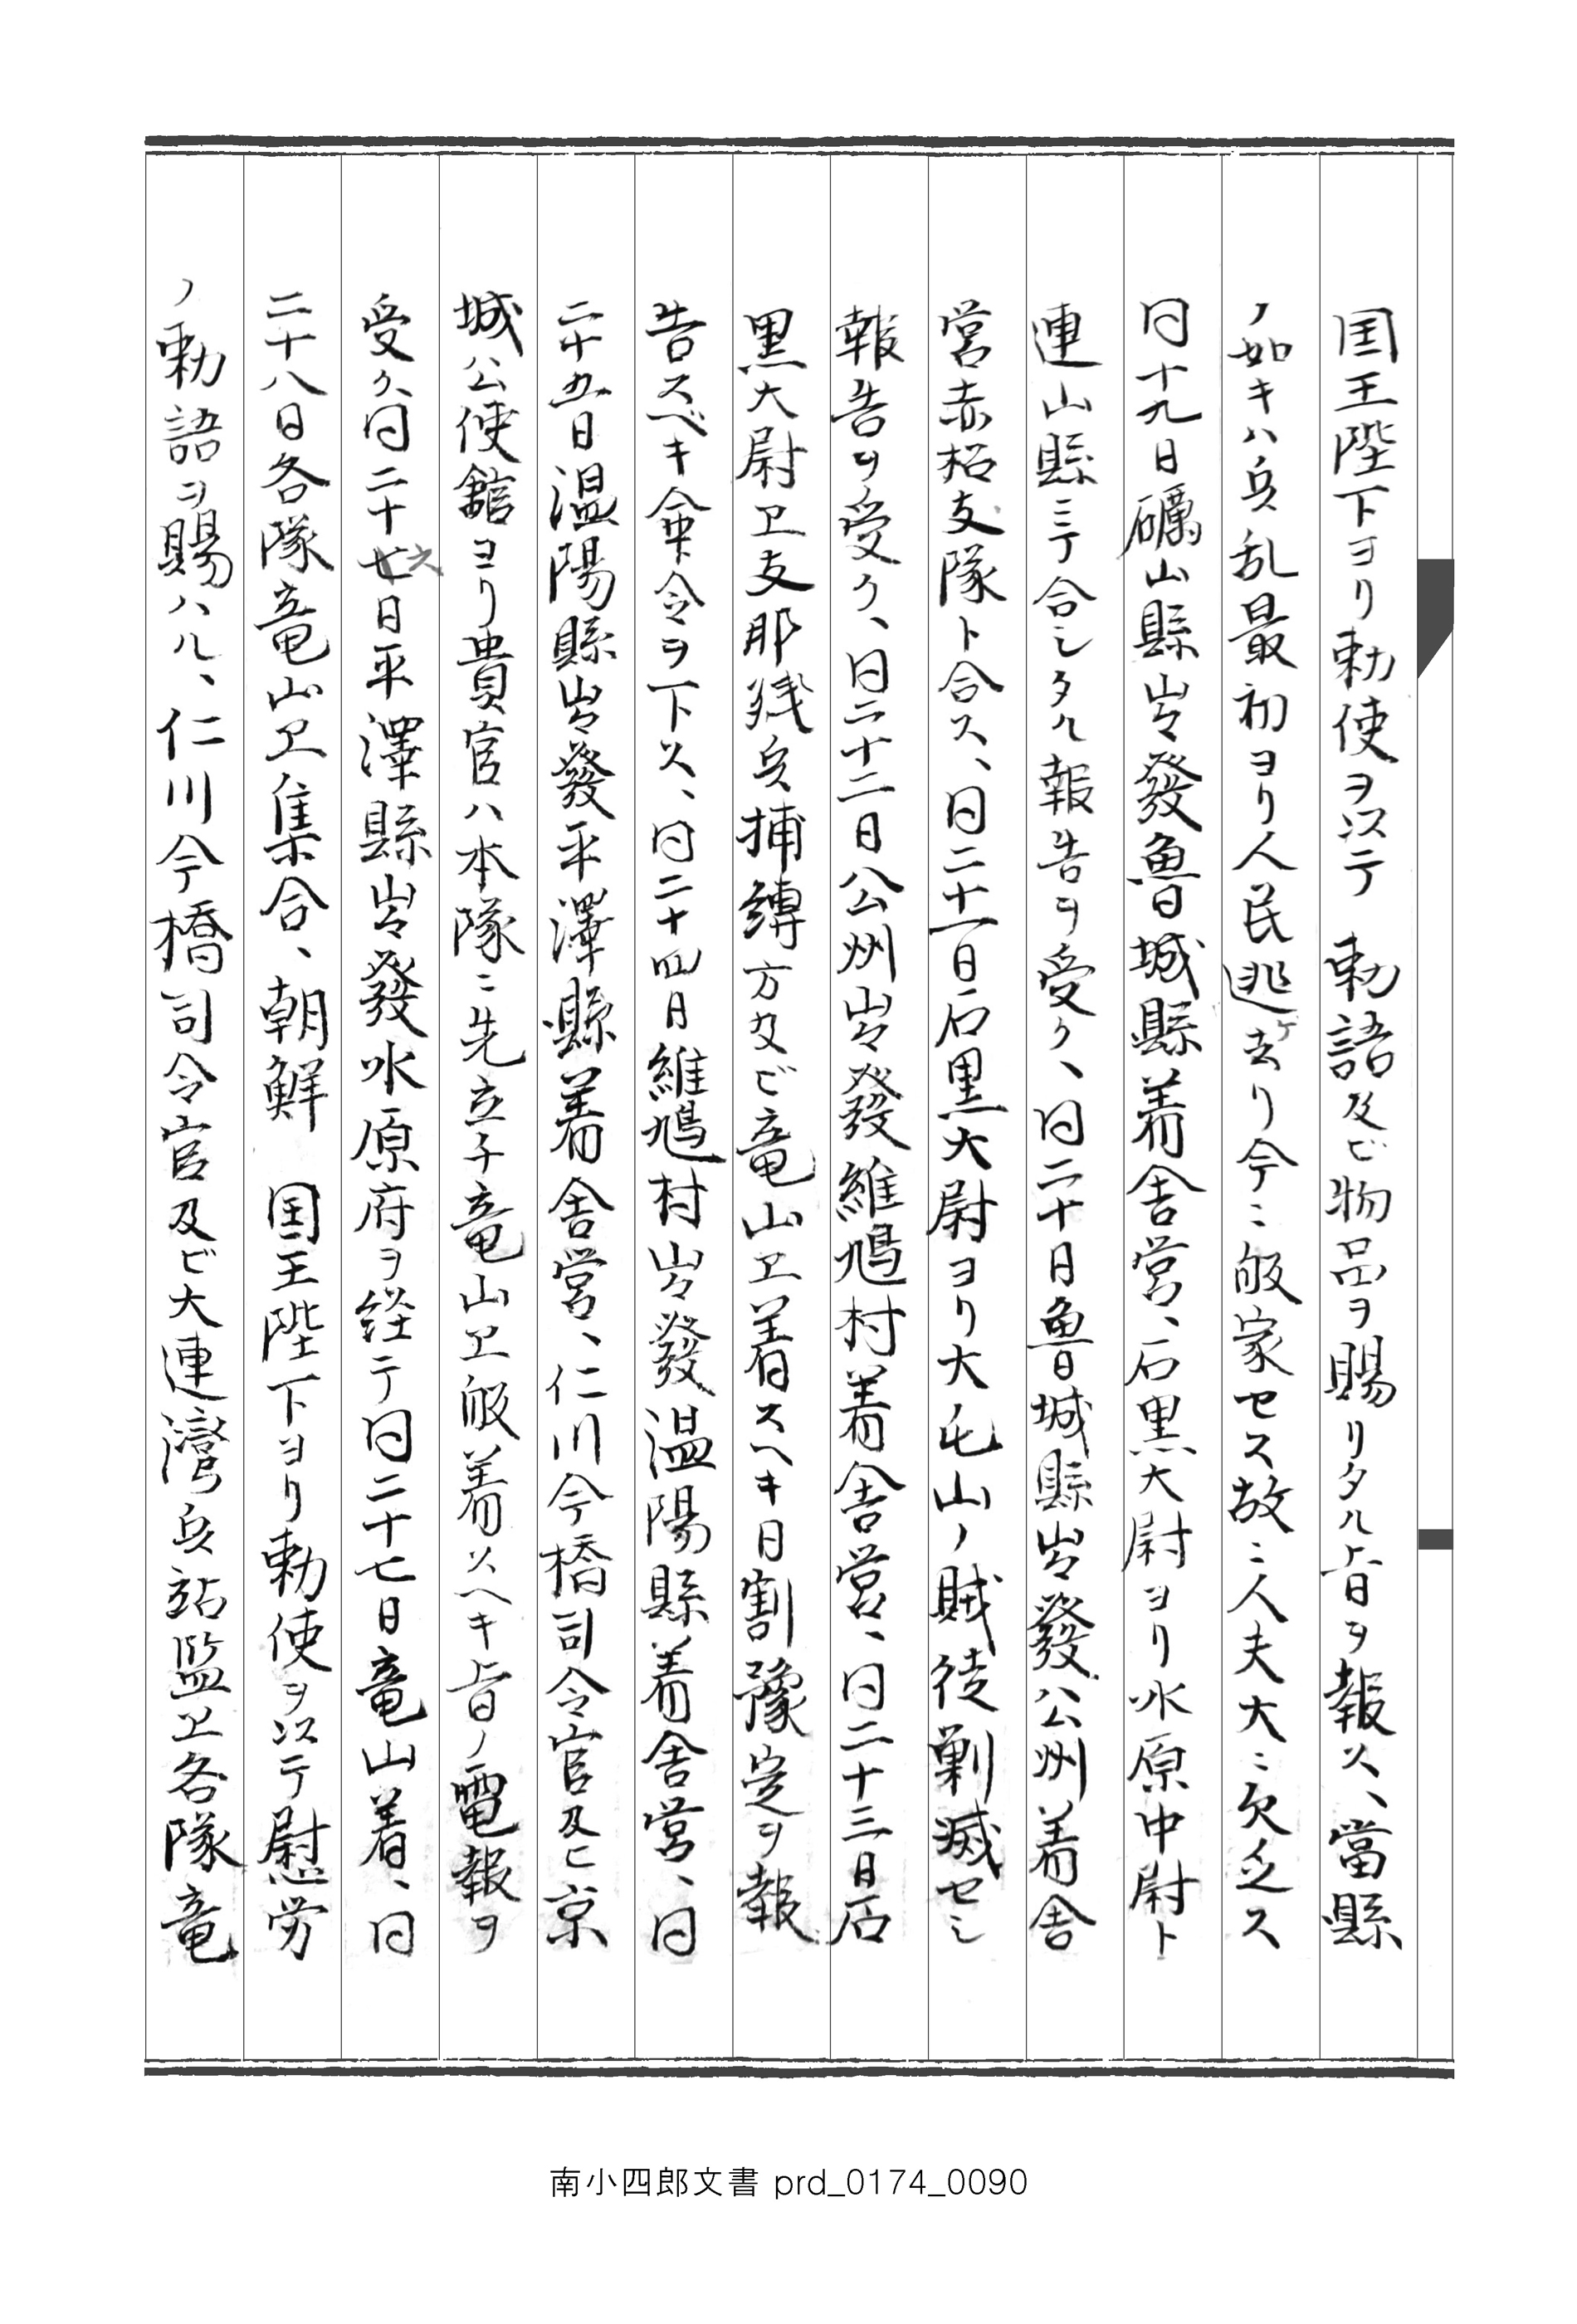 国王陛下ヨリ勅使ヲ以テ　勅語及ビ物品ヲ賜リタル旨ヲ報ス、當縣
ノ如キハ兵乱最初ヨリ人民逃ケ去リ今ニ皈家セス故ニ人夫大ニ欠乏ス
同十九日礪山縣出發魯城縣着舎営、石黒大尉ヨリ水原中尉ト
連山縣ニテ合シタル報告ヲ受ク、同二十日魯城縣出發公州着舎
営赤松支隊ト合ス、同二十一日石黒大尉ヨリ大屯山ノ賊徒剿滅セシ
報告ヲ受ク、同二十二日公州出發維鳩村着舎営、同二十三日石
黒大尉ヱ支那残兵捕縛方及ビ竜山ヱ着スヘキ日割豫定ヲ報
告スベキ命令ヲ下ス、同二十四日維鳩村出發温陽縣着舎営、同
二十五日温陽縣出發平澤縣着舎営、仁川今橋司令官及ヒ京
城公使舘ヨリ貴官ハ本隊ニ先立チ竜山ヱ皈着スヘキ旨ノ電報ヲ
受ク同二十七六日平澤縣出發水原府ヲ経テ同二十七日竜山着、同
二十八日各隊竜山ヱ集合、朝鮮　国王陛下ヨリ勅使ヲ以テ慰労
ノ勅語ヲ賜ハル、仁川今橋司令官及ビ大連灣兵站監ヱ各隊竜
南小四郎文書 prd_0174_0090